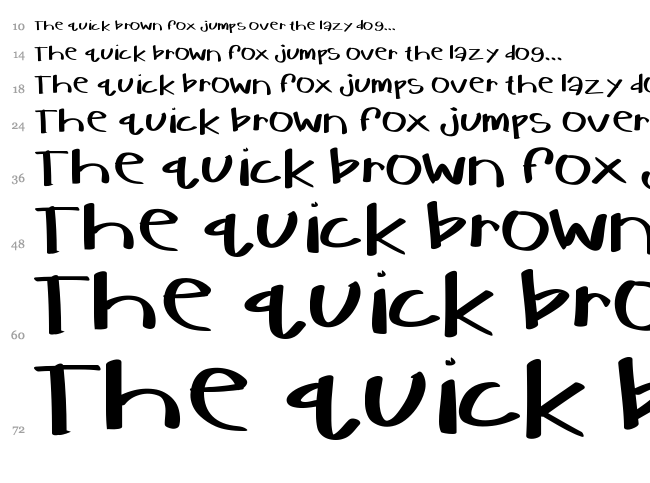 10 The quick brown fox jumps over the lazy dog...
14 The quick brown fox jumps over the lazy dog...
18 The quick brown fox jumps over the lazy do
24 The quick brown fox jumps over
36 The quick brown fox j
48 The quick brown
60 The quick bro
72 The quick b